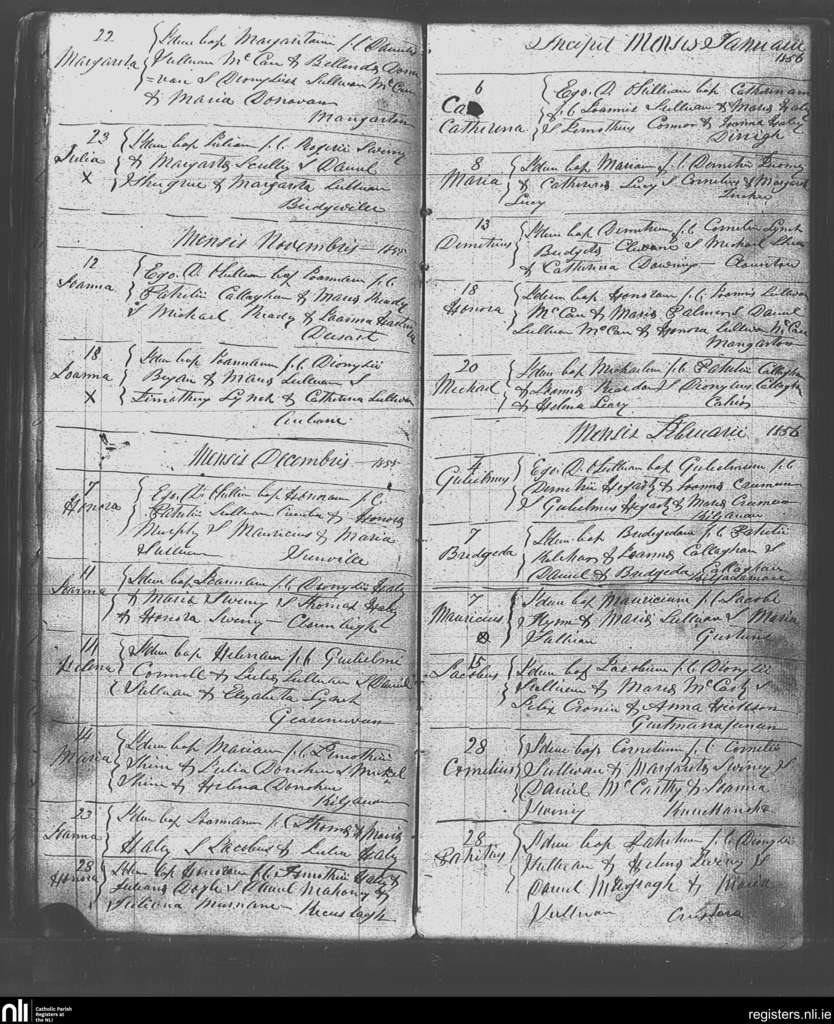 22
Margarita
Idem bap Margaritam f.l. Danielis
Sullivan McCan & Bellinda Dono
=van S Dionysius Sullivan McCan
& Maria Donovan
Mangarton
23
Julia
X
Idem bap Juliam f.l. Rogerii Sweeny
& Margarita Scully S Daniel
Shugrue & Margarita Sullivan
Mensis Novembris 1855
12
Joanna
Ego D. OSullivan bap Joannam f.l.
Patritii Callaghan & Maria Ready
S Michael Ready & Joanna
18
Joanna
X
Idem bap Joannam f.l. Dionysii
Bryan & Maria Sullivan S
Timotheus Lynch & Catherina Sullivan
Mensis Decembris 1855
7
Honora
Ego D. OSullivan bap Honoram f.l.
Patritii Sullivan & Honora
Murphy S Mauricius & Maria
Sullivan
11
Joanna
Idem bap Joannam f.l. Dionysii Healy
& Maria Sweeny S Thomas Healy
& Honora Sweeny
14
Helena
Idem bap Helenam f.l. Gulielmi
Connell & Julia Sullivan S Daniel
Sullivan & Elizabeta Lynch
14
Maria
Idem bap Mariam f.l. Timothii
Shine & Julia Donohue S Michael
Shine & Helena Donohue
23
Joanna
Idem bap Joannam f.l. Thoma & Maria
Healy S Jacobus & Julia Healy
28
Honora
Idem bap Honoram f.l. Timothii Healy &
Juliana Doyle S Daniel Mahony &
Juliana Murnane
Incipit Mensis Januarii
1856
6
Catherina
Ego D. OSullivan bap Catharinam
f.l. Joannis Sullivan & Maria Healy
S Timotheus Connor & Joanna Healy
8
Maria
Idem bap Mariam f.l. Demetrii
& Catherina Lucy S Cornelius & Margarita
Lucy
13
Demetrius
Idem bap Demetrium f.l. Cornelii Lynch
Bridgeta S Michael Shea
& Catherina Downing
18
Honora
Idem bap Honoram f.l. Joannis Sullivan
McCan & Maria Palmer S Daniel
Sullivan McCan & Honora Sullivan McCan
Mangarton
20
Michael
Idem bap Michaelem f.l. Patritii Callaghan
& Joanna Reardon S Dionysius Callaghan
& Helena Leary
Mensis Februarii 1856
4
Gulielmus
Ego D. OSullivan bap Gulielmum f.l.
Demetrii Hegarty & Joanna Cremeen
S Gulielmus Hegarty & Maria Cremeen
7
Bridgeda
Idem bap Bridgedam f.l. Patritii
Kelehar & Joanna Callaghan S
Daniel & Bridgeda Callaghan
7
Mauricius
Idem bap Mauricium f.l. Jacobi
Flynn & Maria Sullivan S Maria
Sullivan
15
Jacobus
Idem bap Jacobum f.l. Dionysii
Sullivan & Maria McCarthy S
Felix Cronin & Anna Hickson
28
Cornelius
Idem bap Cornelium f.l. Cornelii
Sullivan & Margarita Sweeny S
Daniel McCarthy & Joanna
Sweeny
28
Patritius
Idem bap Patritium f.l. Dionysii
Sullivan & Helena Sweeny S
Daniel & Maria
Sullivan
nli
Catholic Parish
Registers at
the NLI
registers.nli.ie